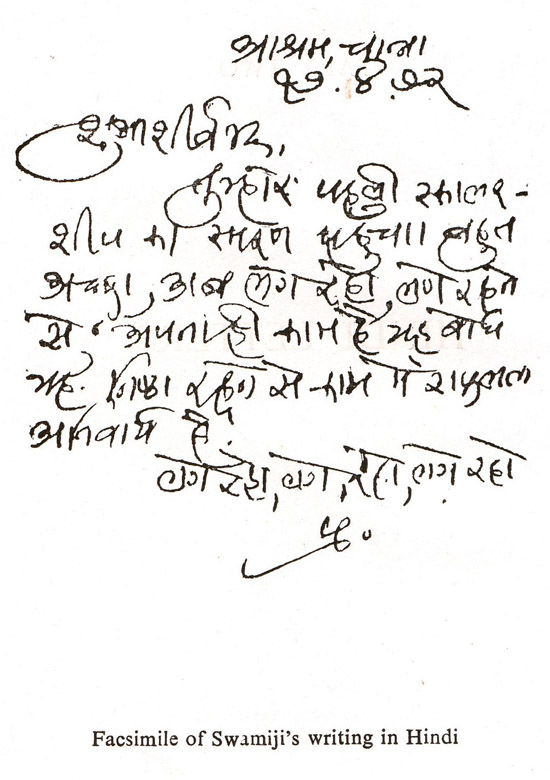 आश्रम, चुनार
१७.४.७२
शुभाशीर्वाद,
तुम्हारे पहली स्कालर-
शीप का स्मरण पहुंचा। बहुत
अच्छा, अब लग रहो, लगे रहने
से, अपना ही काम है यह बोध
यह निष्ठा रहने से काम में सफलता
अनिवार्य है।
लगे रहो, लगे रहो, लगे रहो
Facsimile of Swamiji's writing in Hindi